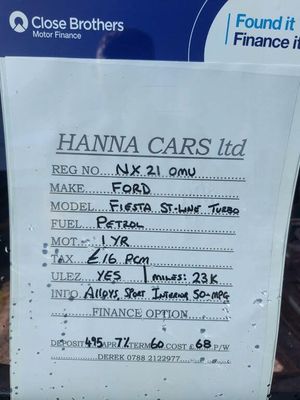 Close Brothers
Motor Finance
Found it
Finance i
HANNA CARS ltd
REG NO...NX 21 OMU
MAKE...FORD
MODEL...FIESTA ST-LINE TURBO
FUEL...PETROL
MOT...1 YR
TAX...£16 PCM
ULEZ YES | MILES: 23K
INFO. ALLOYS SPORT INTERIOR 50-MPG
FINANCE OPTION
DEPOSIT 495 APR 7% TERM 60 COST £ 68 P/W
DEREK 0788 2122977